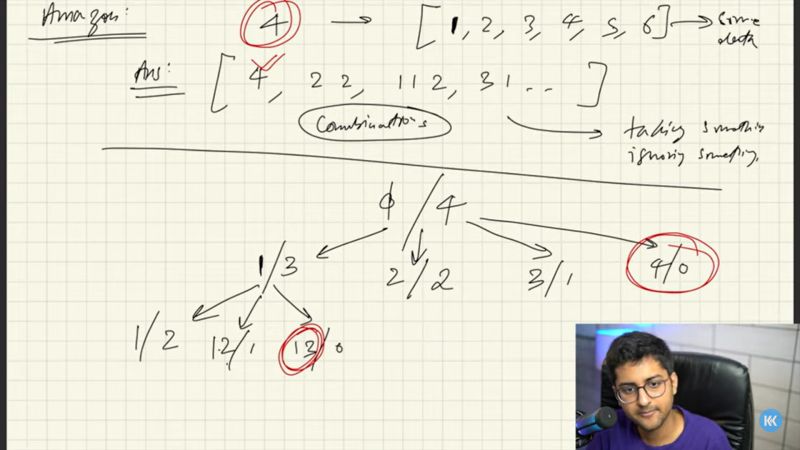 Amazon: 4 → [1, 2, 3, 4, 5, 6] → some
Ans: [4, 22, 112, 31 .. ]
Combinations
taking something
ignoring something.
ϕ / 4
1/3 2/2 3/1 4/0
1/2 12/1 13/0
KK